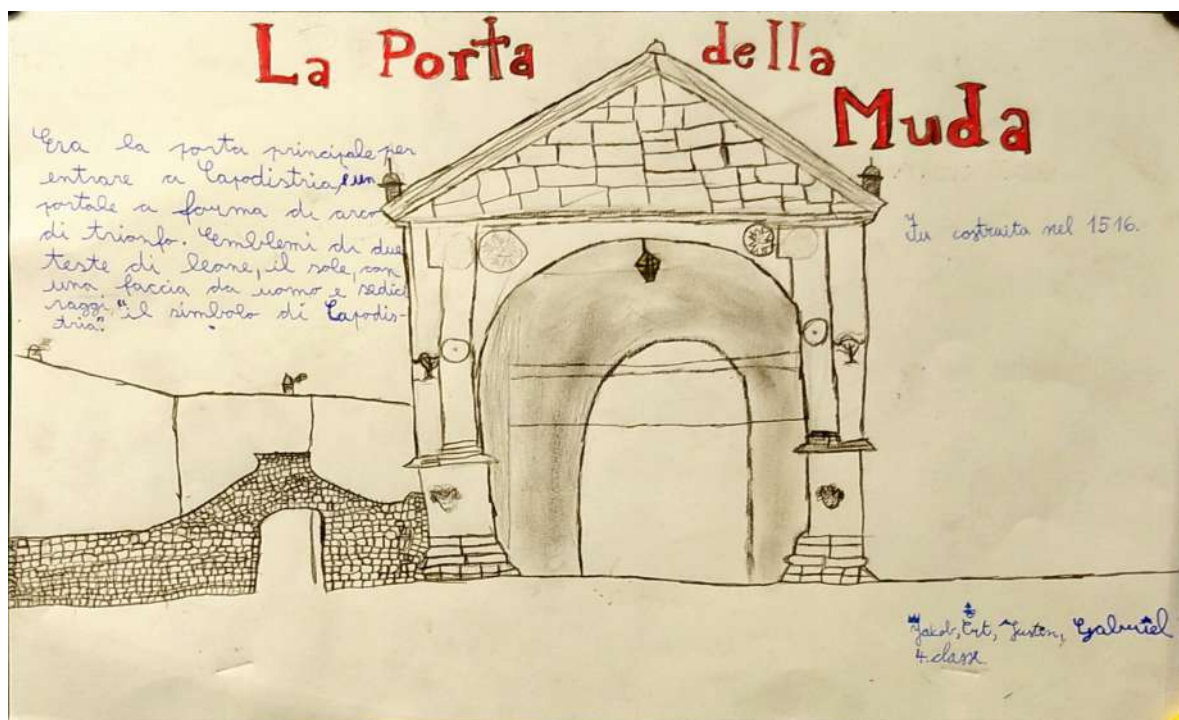 La Porta della
Muda
Era la porta principale per
entrare a Capodistria, è un
portale a forma di arco
di trionfo. Emblemi di due
teste di leone, il sole, con
una faccia da uomo e sedici
raggi, "il simbolo di Capodis-
tria".
Fu costruita nel 1516.
Jakob, Ert, Justin, Gabriel
4. classe